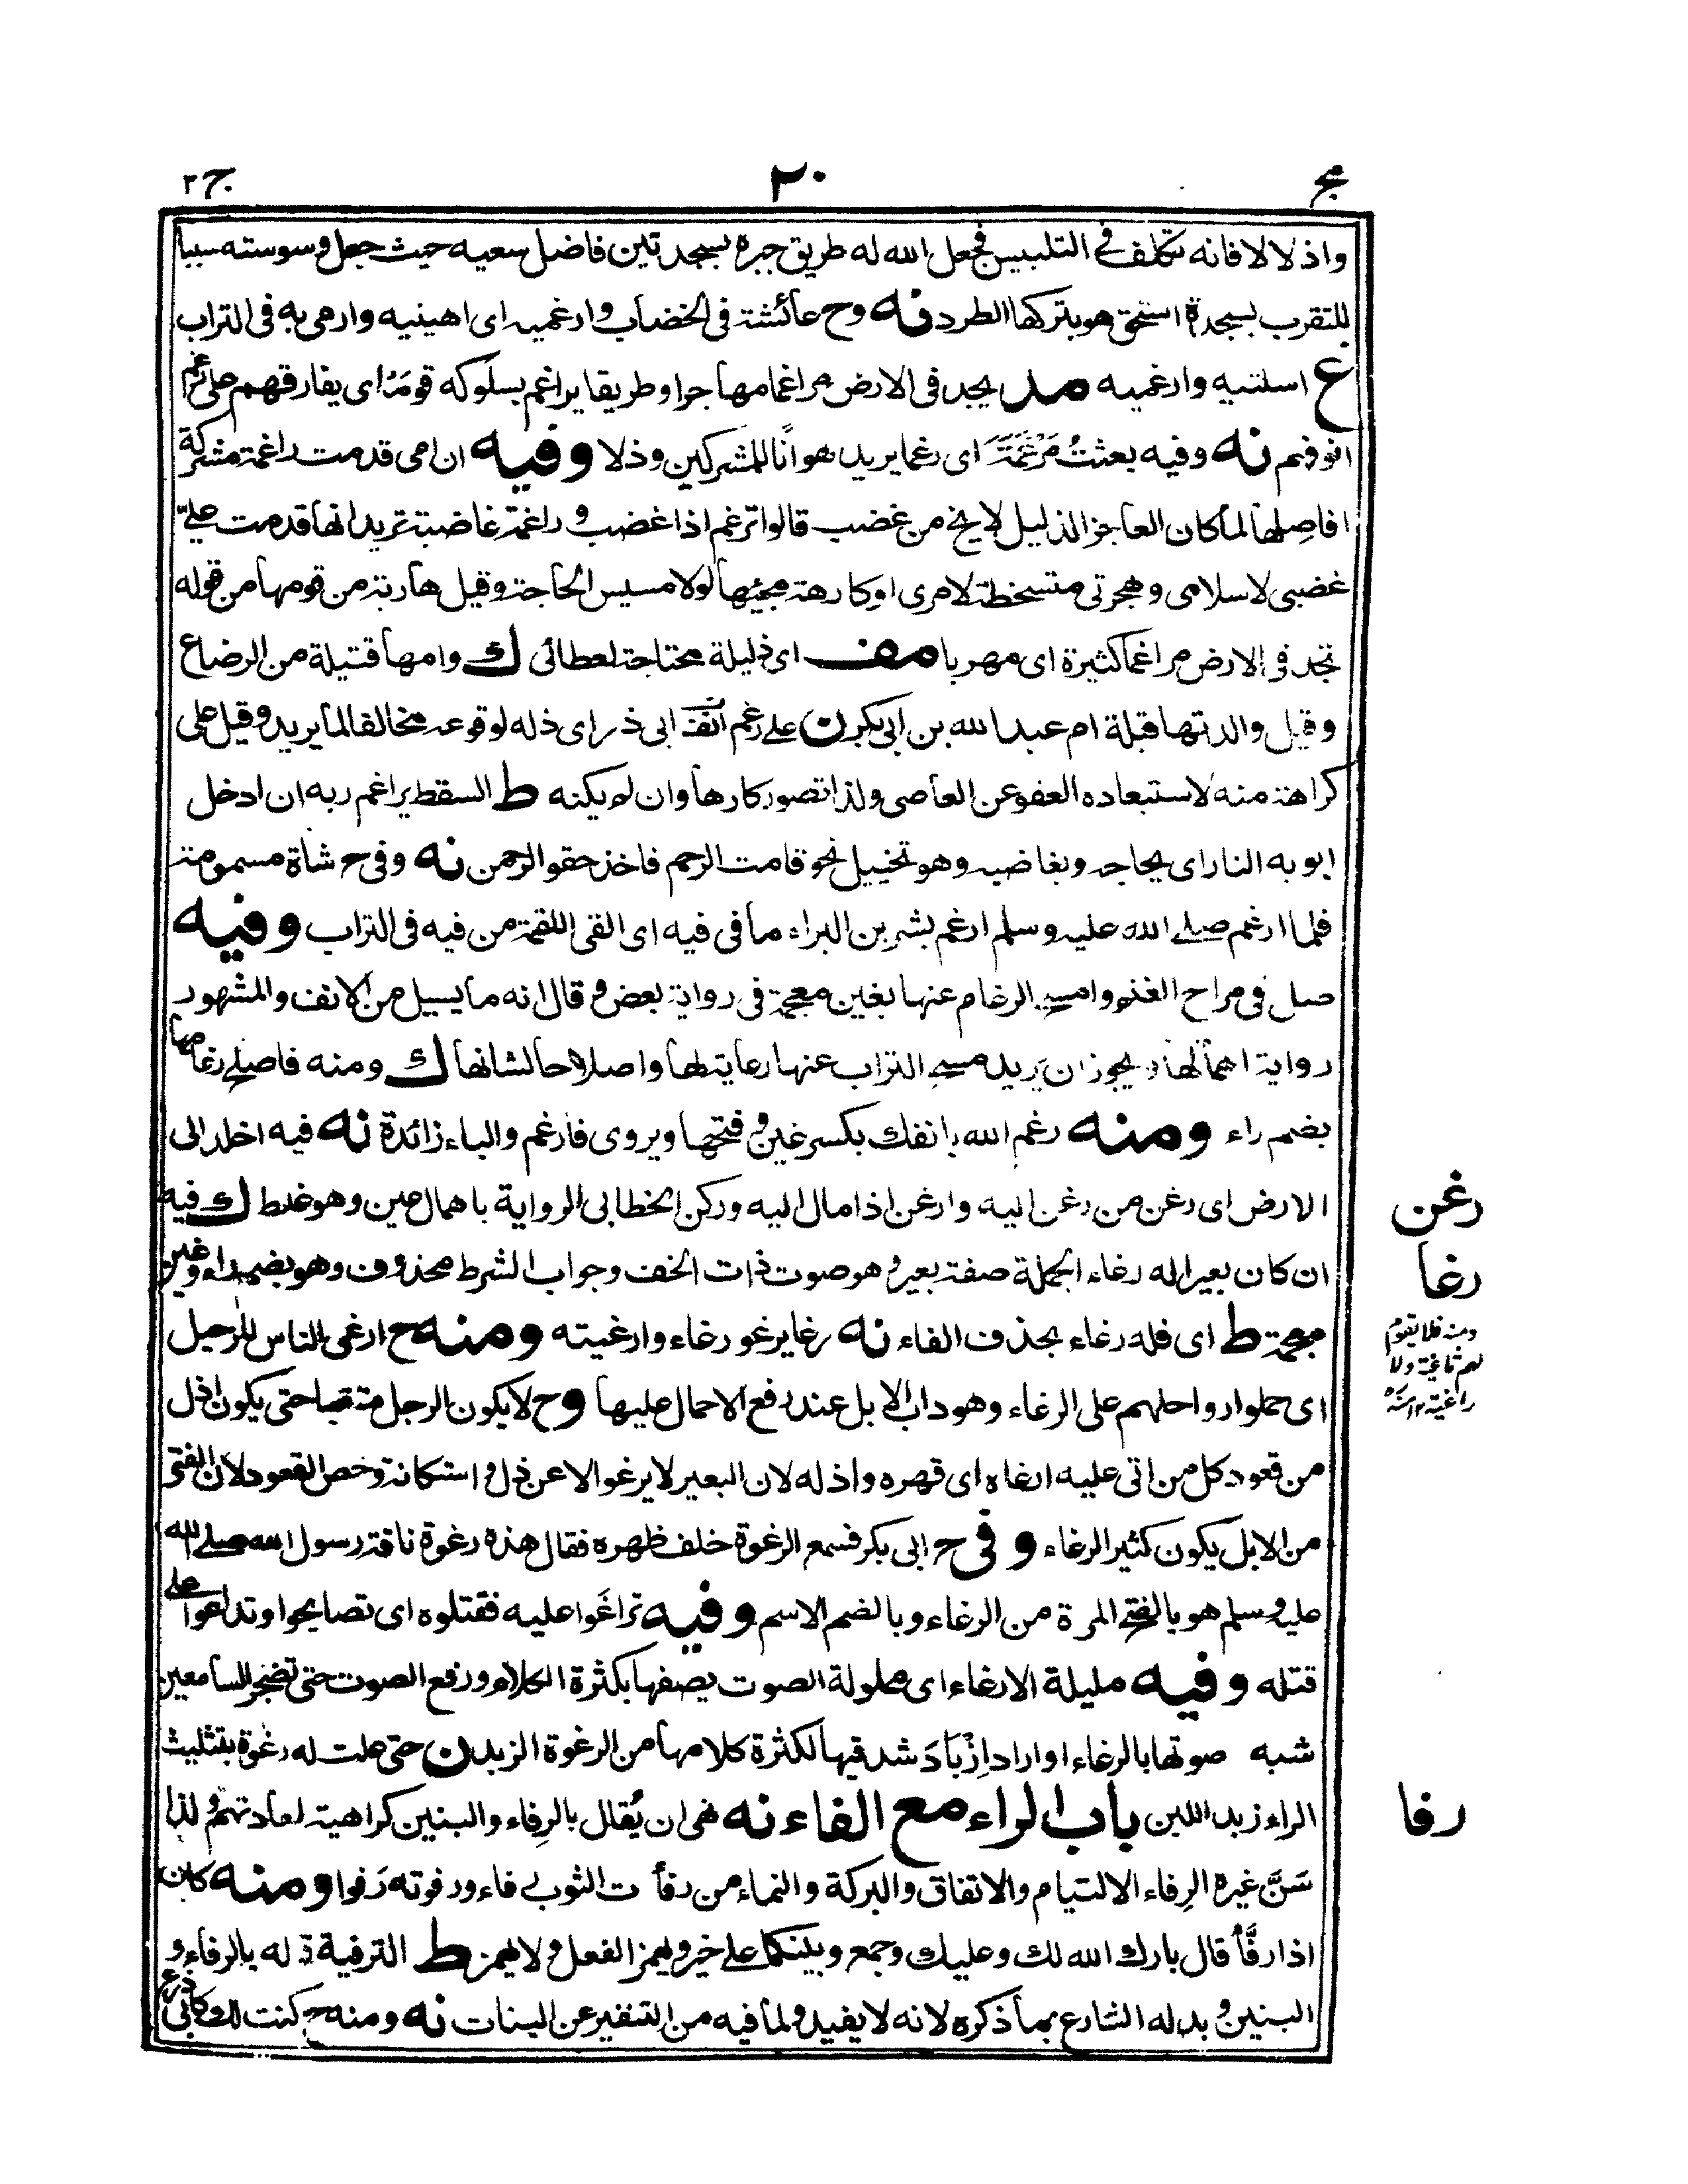 مج ٢٠ ج ٢
واذلالا فانه تكلف فى التلبيس فجعل الله له طريق جبره بسجدتين فاضل سعيه حيث جعل وسوسته سببا
للتقرب بسجدة استحق هو بتركها الطرد نه وح عائشة فى الخضاب وارغميه اى اهينيه وارمى به فى التراب
ع اسلتيه وارغميه مد يجد فى الارض مراغما مهاجرا وطريقا يراغم بسلوكه قومَهُ اى يفارقهم على رغم
انوفهم نه وفيه بعثتُ مَرْغَمَةً اى رغما يريد هوانًا للمشركين وذلا وفيه ان امى قدمت راغمة مشركة
افاصِلها لما كان العاجز الذليل لا يخ من غضب قالوا ترغم اذا غضب و راغمة غاضبة تريد انها قدمت علىّ
غضبى لاسلامى وهجرتى متسخطة لامرى او كارهة مجيئها لولا مسيس الحاجة وقيل هاربة من قومها من قوله
تجد فى الارض مراغما كثيرة اى مهربا مف اى ذليلة محتاجة لعطائى ك وامها قتيلة من الرضاع
وقيل والدتها قبلة ام عبد الله بن ابى بكر ن على رغم انف ابى ذر اى ذله لوقوعه مخالفا لما يريد وقيل على
كراهة منه لاستبعاده العفو عن العاصى ولذا تصور كارها وان لم يكنه ط السقط يراغم ربه ان ادخل
ابويه النار اى يحاجه ويغاضبه وهو تخييل نحو قامت الرحم فاخذ حقو الرحمن نه وفى ح شاة مسمومة
فلما ارغم صلى الله عليه وسلم ارغم بشر بن البراء ما فى فيه اى القى اللقمة من فيه فى التراب وفيه
صل فى مراح الغنم وامسح الرغام عنها بغين معجمة فى رواية بعض و قال انه ما يسيل من الانف والمشهور
رواية اهمالها ويجوز ان يريد مسح التراب عنها رعاية لها واصلاحا لشانها ك ومنه فاصلح رغامها
بضم راء ومنه رغم الله بانفك بكسر غين و فتحها ويروى فارغم والباء زائدة نه فيه اخلد الى
الارض اى رغن من رغن اليه وارغن اذا مال اليه وركن الخطابى الرواية باهمال عين وهو غلط ك فيه
ان كان بعيرا له رغاء الجملة صفة بعير و هو صوت ذات الخف وجواب الشرط محذوف وهو بضم راء وغين
معجمة ط اى فله رغاء بحذف الفاء نه رغا يرغو رغاء وارغيته ومنه ح ارغى الناس للرحيل
اى حملوا رواحلهم على الرغاء وهو داب الابل عند رفع الاحمال عليها وح لا يكون الرجل متقيا حتى يكون اذل
من قعود كل من اتى عليه ارغاه اى قهره واذله لان البعير لا يرغو الا عن ذل و استكانة وخص القعود لان الفتى
من الابل يكون كثير الرغاء وفى ح ابى بكر فسمع الرغوة خلف ظهره فقال هذه رغوة ناقة رسول الله صلى الله
عليه وسلم هو بالفتح المرة من الرغاء وبالضم الاسم وفيه تراغَوا عليه فقتلوه اى تصايحوا وتداعوا على
قتله وفيه مليلة الارغاء اى مملولة الصوت يصفها بكثرة الكلام و رفع الصوت حتى تضجر السامعين
شبه صوتها بالرغاء او اراد اِزْبَادَ شدقيها لكثرة كلامها من الرغوة الزبد ن حتى علت له رغوة بتثليث
الراء زبد اللبن باب الراء مع الفاء نه نهى ان يُقال بالرِفاء والبنين كراهية لعادتهم و لذا
سَنَّ غيره الرِفاء الالتيام والاتفاق والبركة والنماء من رفأت الثوب رفاء ورفوته رَفوا ومنه كان
اذا رفَّأ قال بارك الله لك وعليك وجمع وبينكما على خير ويهمز الفعل و لا يهمز ط الترفية قوله بالرفاء و
البنين و بدله الشارع بما ذكره لانه لا يفيد و لما فيه من التنفير عن البنات نه ومنه ح كنت لك كابى زرع
رغن
رغا
ومنه فلا يقوم
لهم ثاغية ولا
راغية ١٢ منه
رفا